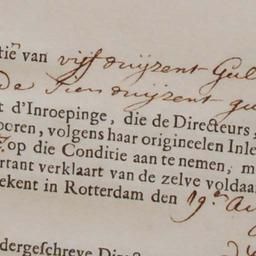 tie van vijf duijzent Gul
De Tien duijzent gu
t d'Inroepinge, die de Directeurs,
ooren, volgens haar origineelen Inle
op die Conditie aan te nemen, m
rtant verklaart van de zelve voldaa
ekent in Rotterdam den 19en Au
dergeschreve Dire